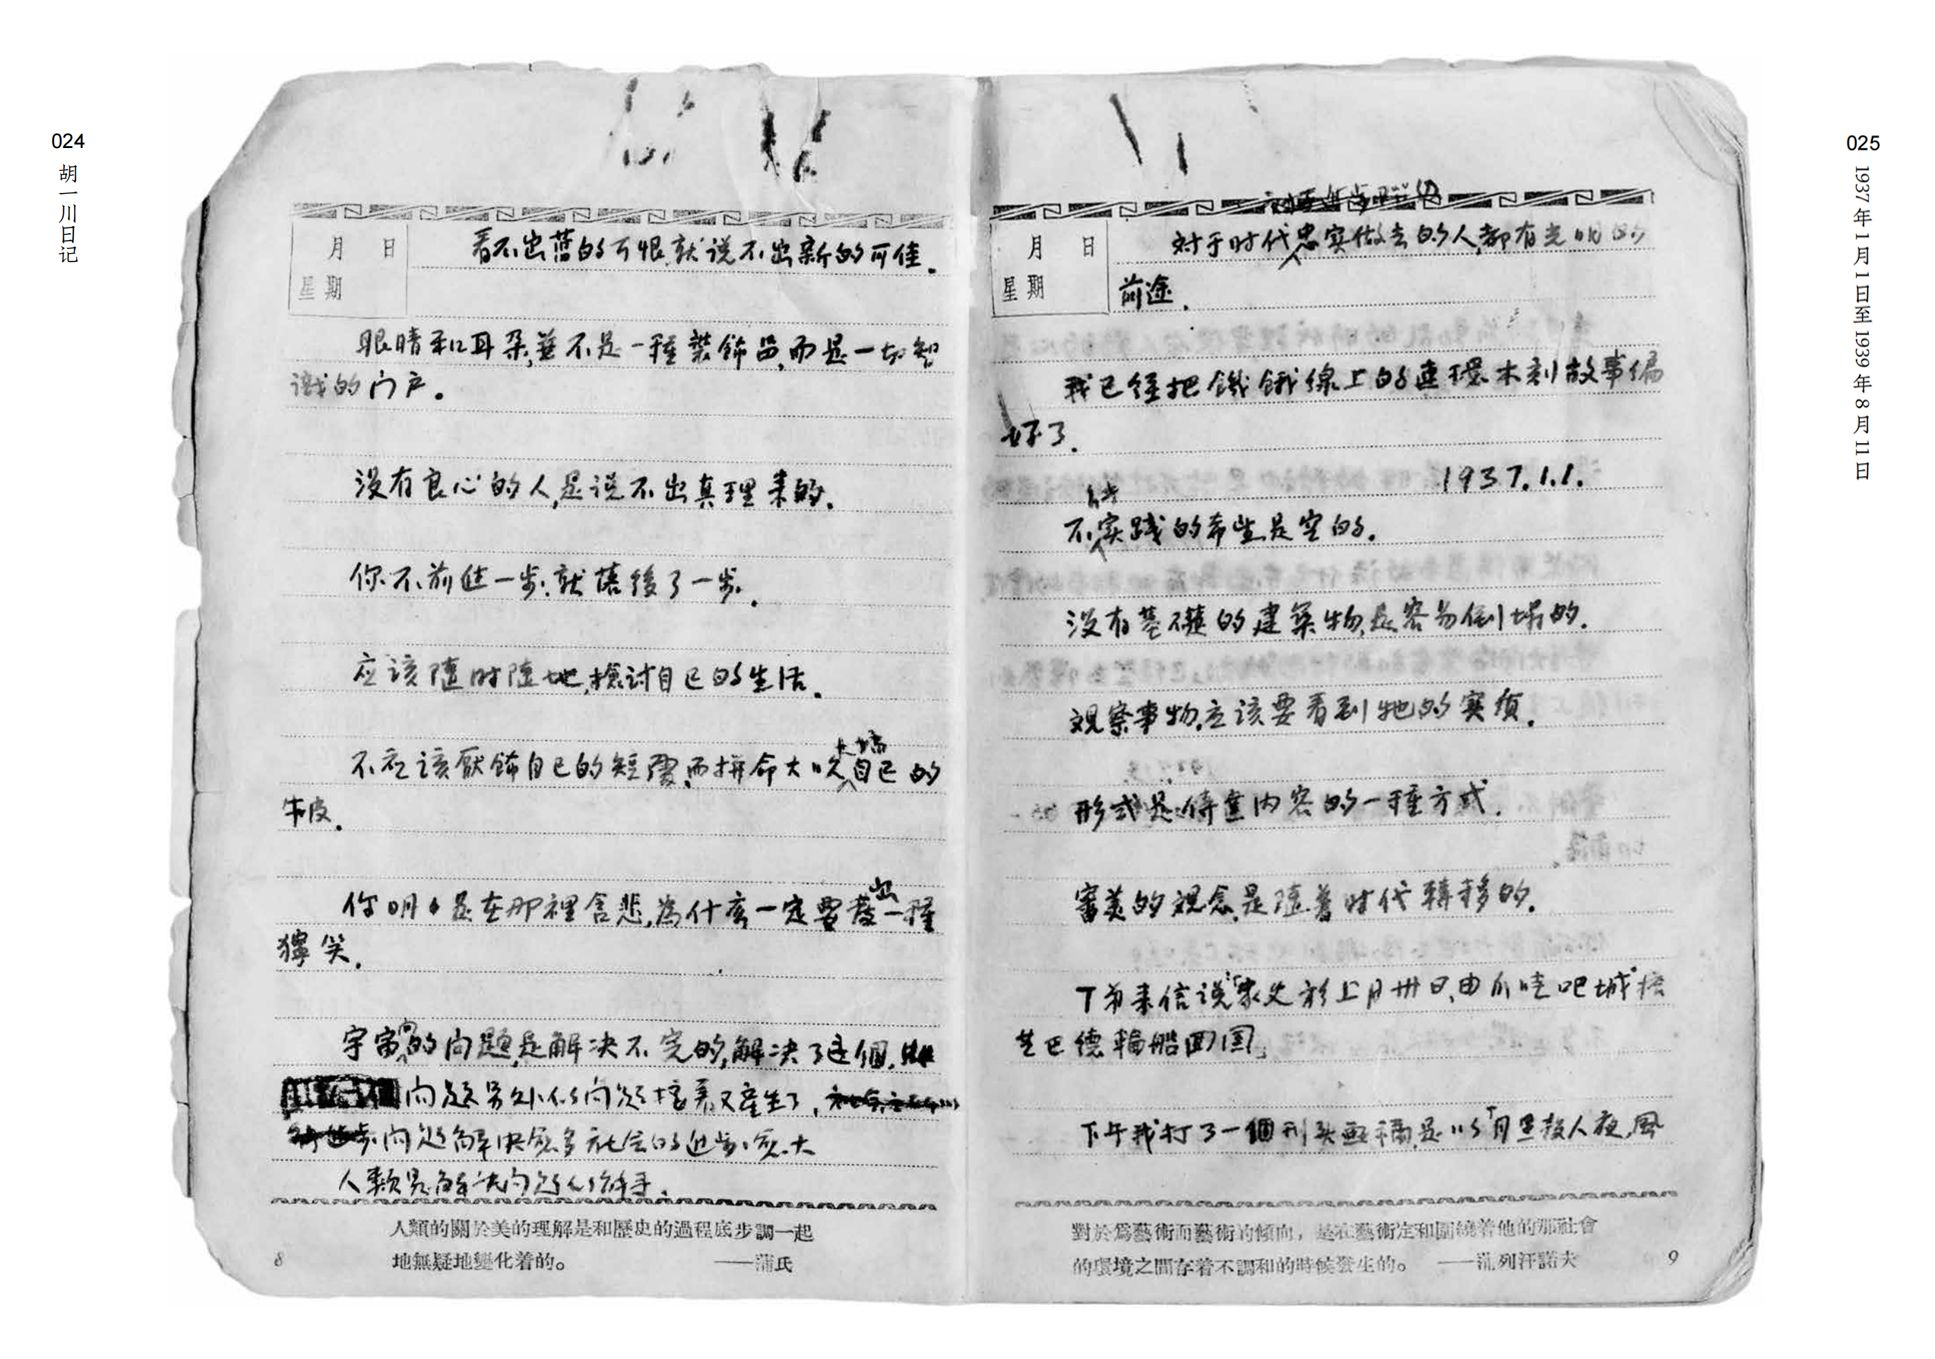 024
胡一川日记
月 日
星期
看不出蓝的可恨,就说不出新的可佳.
眼睛和耳朵,並不是一種装飾品,而是一切智
識的门户.
没有良心的人,是说不出真理来的.
你不前进一步,就落後了一步.
应该隨时隨地,檢討自己的生活.
不应该厭飾自己的短處,而拼命大吹大擂自己的
牛皮.
你明明是在那裡含悲,為什么一定要發出一種
獰笑.
宇宙间的问题,是解决不完的,解决了这個,
问题另外的问题接着又產生了,
问题解决愈多社会的进步愈大
人類是解决问题的能手.
人類的關於美的理解是和歷史的過程底步調一起
地無疑地變化着的。 ——蒲氏
8
025
1937年1月1日至1939年8月11日
月 日
星期
对于时代忠实做去的人,都有光明的
前途.
我已经把饑餓線上的連環木刻故事编
好了.
1937.1.1.
不能实践的希望是空的.
没有基礎的建築物,是容易倒塌的.
观察事物,应该要看到牠的實質.
形式是傳達内容的一種方式.
審美的观念,是隨着时代轉移的.
T弟来信说"家父於上月卅日,由爪哇吧城"搭
芝巴德輪船回国」
下午我打了一個刊头画稿,是"十月里殺人夜,風
對於爲藝術而藝術的傾向，是在藝術定和圍繞着他的那社會
的環境之間存着不調和的時候發生的。 ——蒲列汗諾夫
9